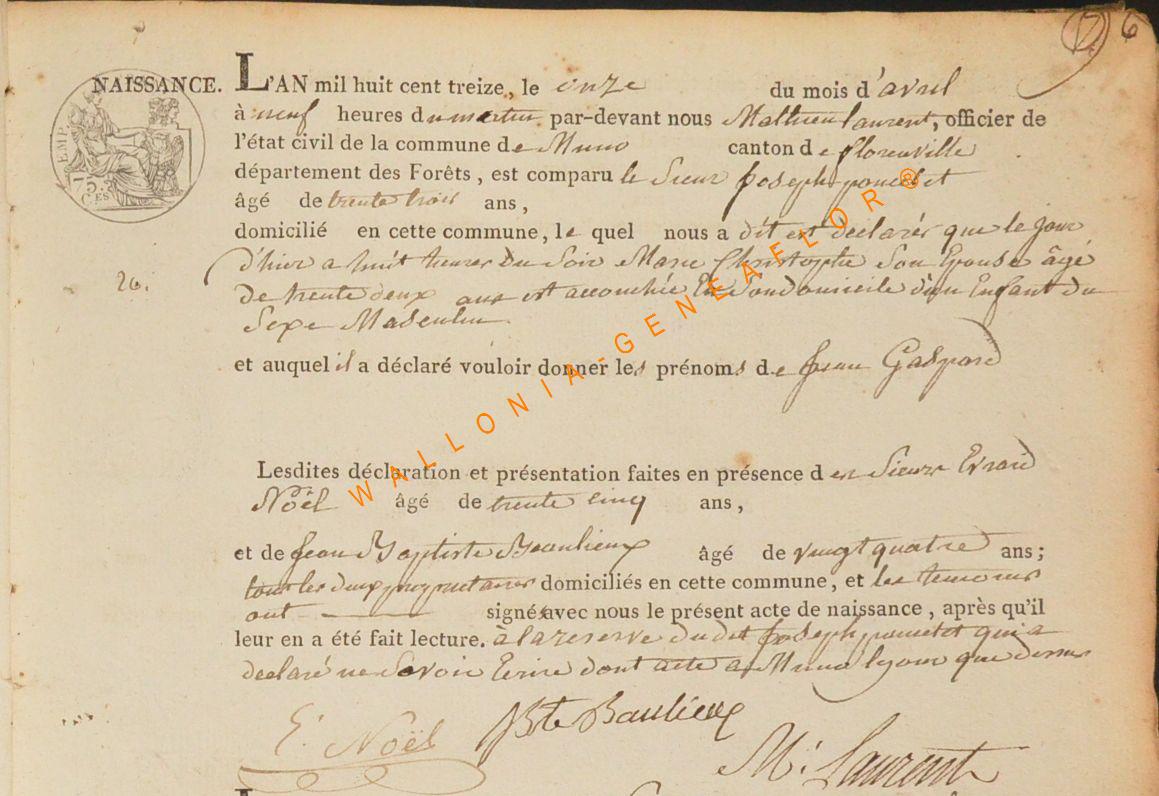 17 6
NAISSANCE. L'AN mil huit cent treize, le onze du mois d'avril
à neuf heures du matin par-devant nous Mathieu Laurent, officier de
l'état civil de la commune de Muno canton de florenville
département des Forêts, est comparu le Sieur Joseph poncelet
âgé de trente trois ans,
domicilié en cette commune, le quel nous a dit et declaré que le jour
d'hier a huit heures du Soir Marie Christophe Son Epouse âgé
26.
de trente deux ans est accouchée En Son domicile d'un Enfant du
Sexe Masculin
et auquel il a déclaré vouloir donner les prénoms de Jean Gaspard
Lesdites déclaration et présentation faites en présence des Sieurs Evrard
Noël âgé de trente cinq ans,
et de Jean Baptiste Beaulieux âgé de vingt quatre ans;
tous les deux proprietaires domiciliés en cette commune, et les temoins
ont signé avec nous le présent acte de naissance, après qu'il
leur en a été fait lecture. à la reserve dudit Joseph poncelet qui a
declaré ne Savoir Ecrire dont acte a Muno lyour que dessus
E. Noël JBte Baulieux
M. Laurent
TEMP.
5
C.ES
WALLONIA-GENEAFLOR®